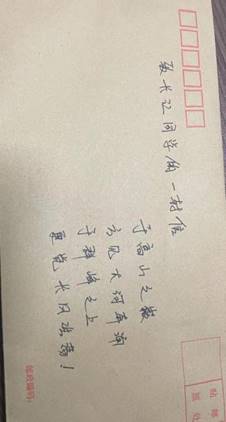 致长江同学的一封信
于高山之巅
方见大河奔涌
于群峰之上
更觉长风浩荡!
贴 邮
票 处
邮政编码: